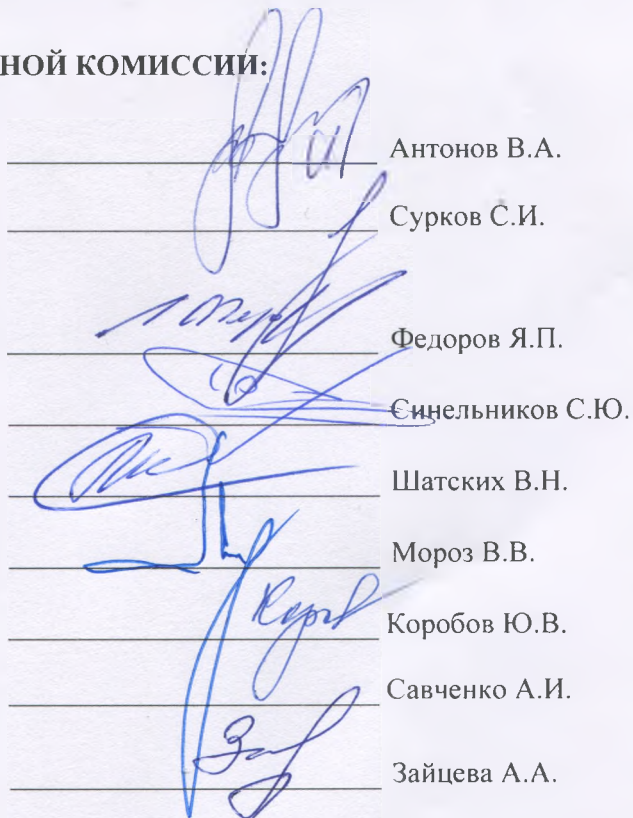 НОЙ КОМИССИИ:
Антонов В.А.
Сурков С.И.
Федоров Я.П.
Синельников С.Ю.
Шатских В.Н.
Мороз В.В.
Коробов Ю.В.
Савченко А.И.
Зайцева А.А.